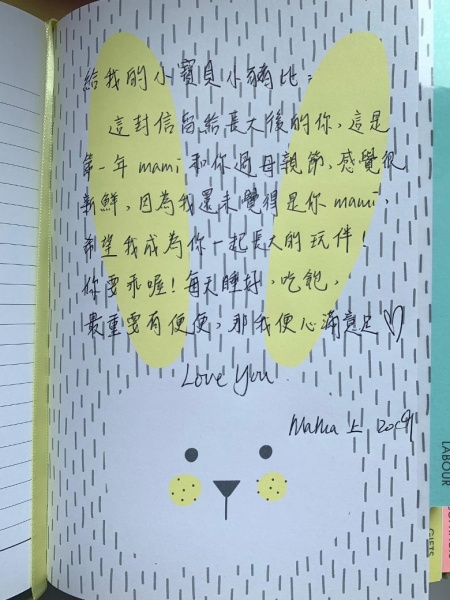 給我的小寶貝小豬比：
這封信留給長大後的你，這是
第一年 mami 和你過母親節，感覺很
新鮮，因為我還未覺得是你 mami，
希望我成為你一起長大的玩伴！
你要乖喔！每天睡好，吃飽，
最重要有便便，那我便心滿意足♡
Love You
Mama 上
LABOUR
GIFTS